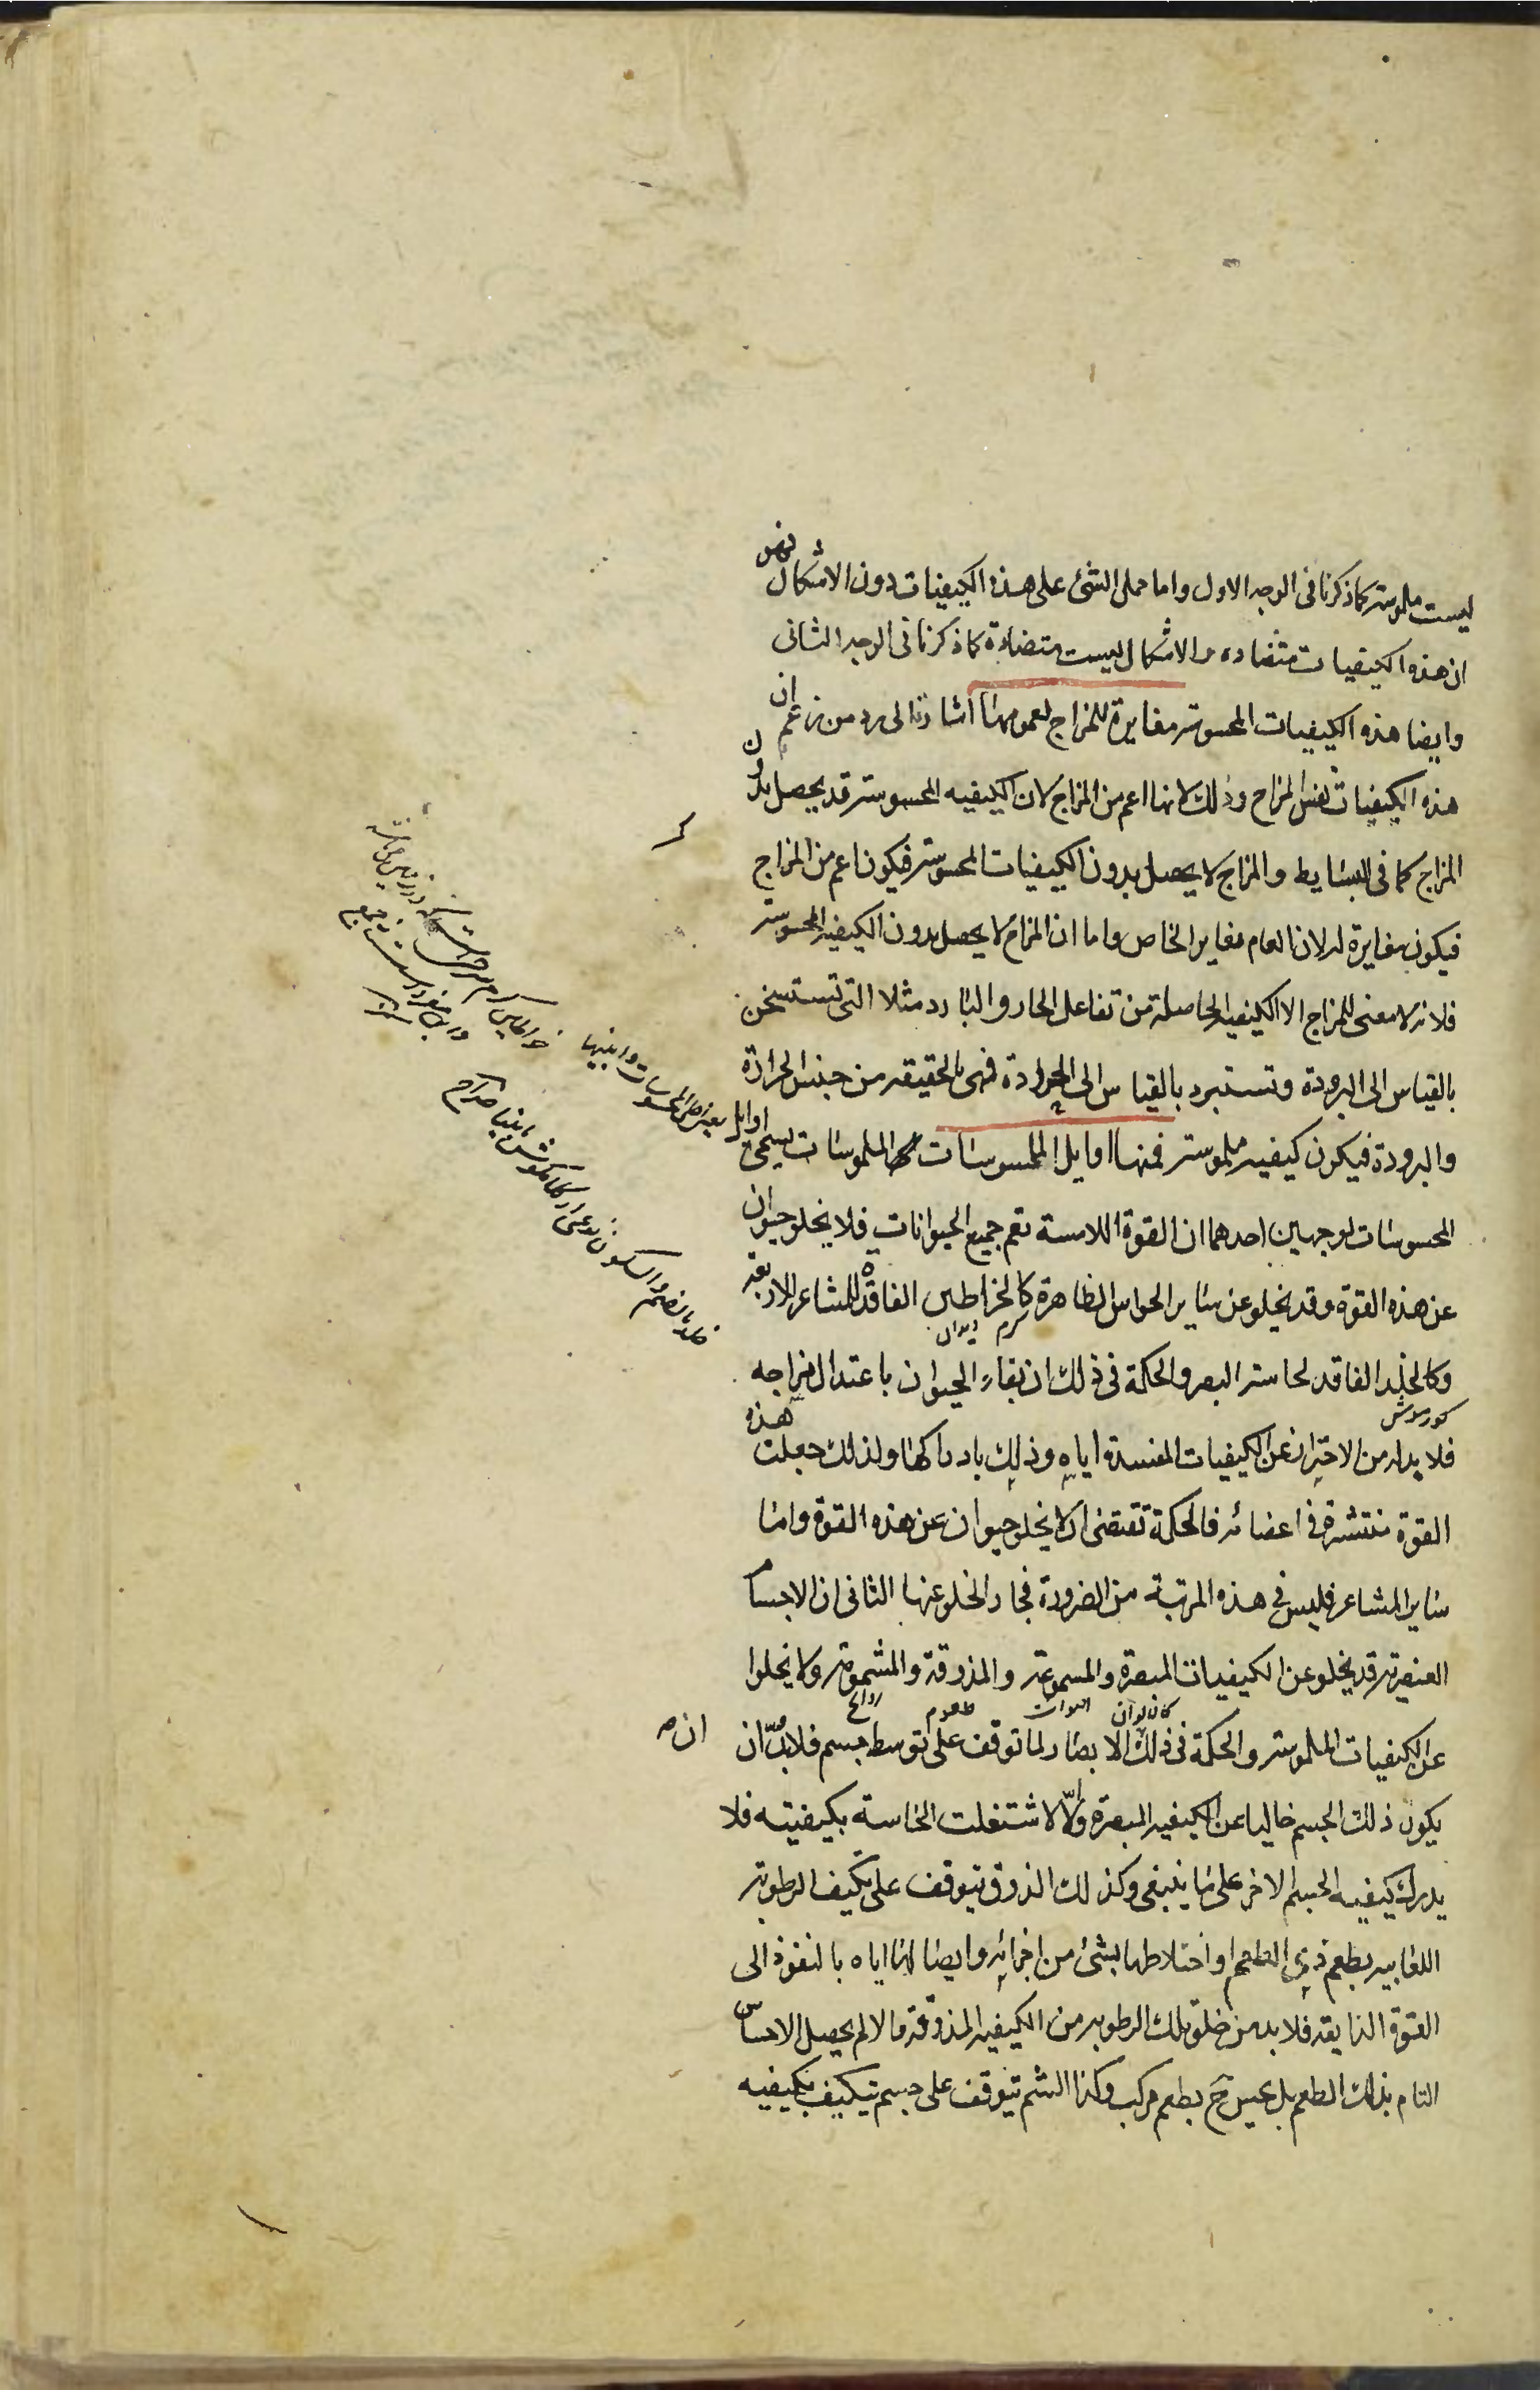 ليست ملموسة كما ذكرنا فى الوجه الاول واما حمل الشئ على هذه الكيفيات دون الاشكال فهو
ان هذه الكيفيات متضاده والاشكال ليست متضادة كما ذكرنا فى الوجه الثانى
وايضا هذه الكيفيات المحسوسة مغايرة للمزاج لعمومها اشارة الى رد من زعم ان
هذه الكيفيات نفس المزاج وذلك لانها اعم من المزاج لان الكيفيه المحسوسة قد يحصل بدون
المزاج كما فى البسايط والمزاج لا يحصل بدون الكيفيات المحسوسة فيكون اعم من المزاج
فيكون مغايرة له لان العام مغاير الخاص واما ان المزاج لا يحصل بدون الكيفيه المحسوسة
فلانه لا معنى للمزاج الا الكيفيه الحاصلة من تفاعل الحار والبارد مثلا التى تستسخن
بالقياس الى البرودة وتستبرد بالقياس الى الحرارة فهى بالحقيقه من جنس الحرارة
والبرودة فيكون كيفيه ملموسة فمنها اوايل الملموسات الملموسات يسمى اوايل
المحسوسات لوجهين احدهما ان القوة اللامسة تعم جميع الحيوانات فلا يخلو حيوان
عن هذه القوة وقد يخلو عن ساير الحواس الظاهرة كالخراطين الفاقدة للمشاعر الاربعه
كرم
وكالخلد الفاقد لحاسة البصر والحكمة فى ذلك ان بقاء الحيوان باعتدال مزاجه
كور موش
فلا بد له من الاحتراز عن الكيفيات المفسدة اياه وذلك بادراكها ولذلك جعلت هذه
القوة منتشرة فى اعضائه فالحكمة تقتضى ان لا يخلو حيوان عن هذه القوة واما
ساير المشاعر فليس فى هذه المرتبة من الضرورة فجاز الخلو عنها الثانى ان الاجسام
العنصرية قد يخلو عن الكيفيات المبصرة والمسموعة والمذوقة والمشمومة ولا يخلوا
كالالوان اصوات طعوم روائح
عن الكيفيات الملموسة والحكمة فى ذلك ان الابصار لما توقف على توسط جسم فلا بد ان
يكون ذلك الجسم خاليا عن الكيفيه المبصرة والا لاشتغلت الحاسة بكيفيته فلا
يدرك كيفيه الجسم الاخر على ما ينبغى وكذلك الذوق يتوقف على تكيف الرطوبة
اللعابيه بطعم ذى الطعم او اختلاطها بشئ من اجزائه وايصالها اياه بالنفوذ الى
القوة الذايقه فلا بد من خلو تلك الرطوبه من الكيفيه المذوقة والا لم يحصل الاحساس
التام بذلك الطعم بل يحس ح بطعم مركب وكذا الشم يتوقف على جسم يتكيف بكيفيه